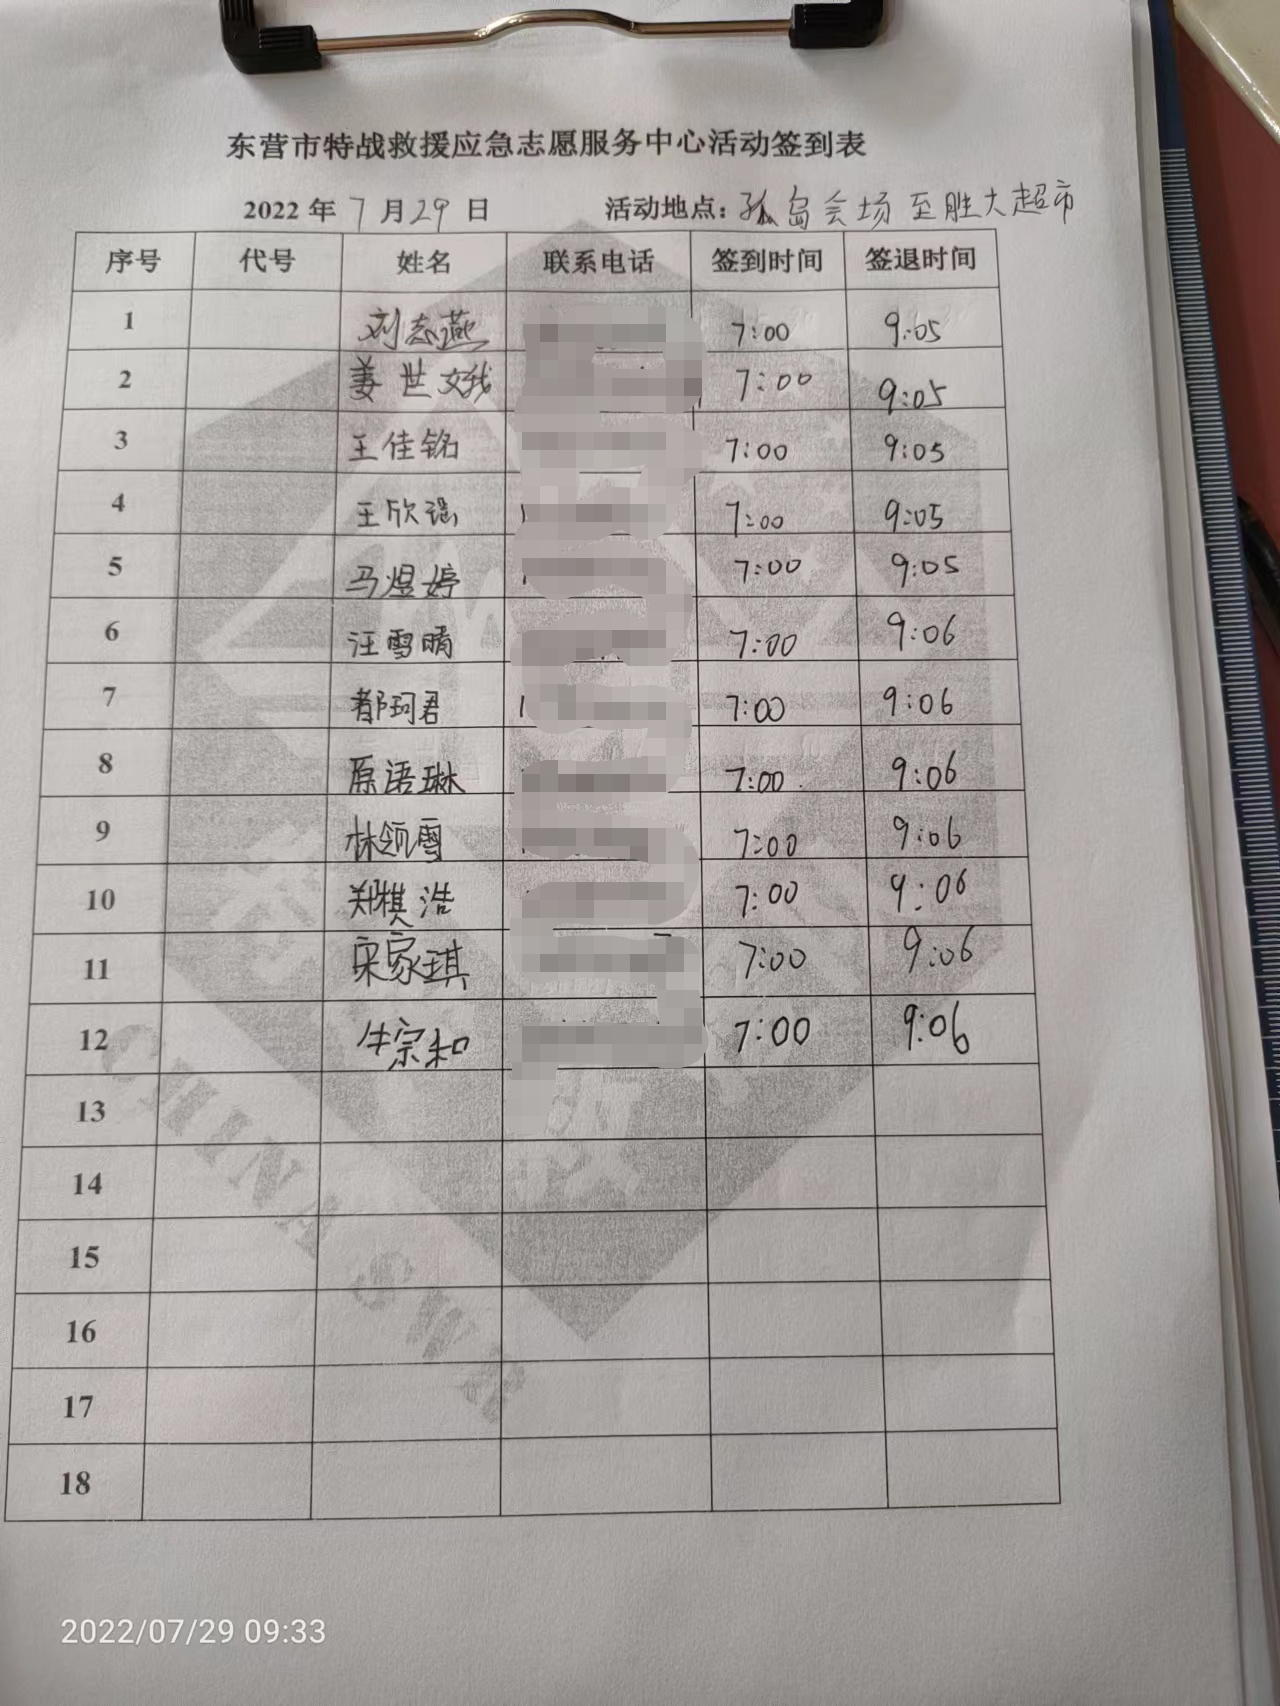 东营市特战救援应急志愿服务中心活动签到表
2022年7月29日 活动地点：孤岛会场至胜大超市
序号 代号 姓名 联系电话 签到时间 签退时间
1 刘志燕 7:00 9:05
2 姜世娥 7:00 9:05
3 王佳铭 7:00 9:05
4 王欣瑶 7:00 9:05
5 马煜婷 7:00 9:05
6 汪雪晴 7:00 9:06
7 郗珂君 7:00 9:06
8 原语琳 7:00 9:06
9 林领雪 7:00 9:06
10 郑棋浩 7:00 9:06
11 宋家琪 7:00 9:06
12 牛宗和 7:00 9:06
13
14
15
16
17
18
CHINA SWR
2022/07/29 09:33